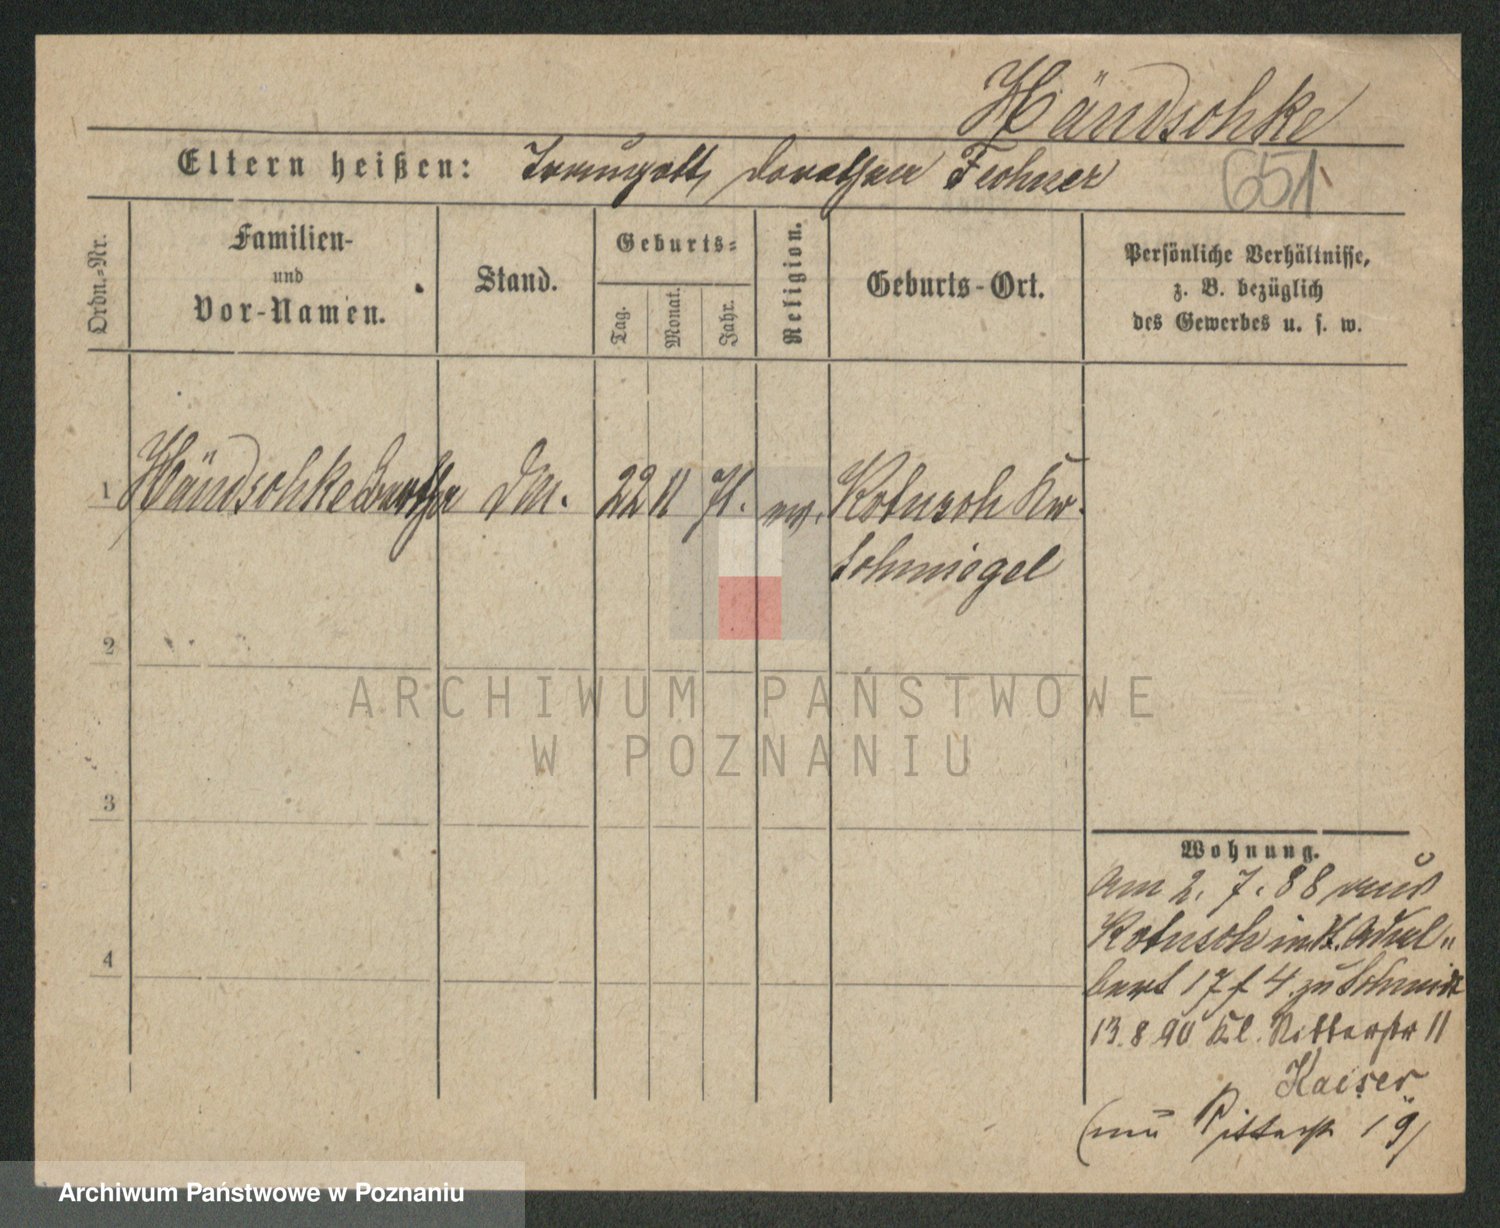 Händschke
Eltern heißen: Traugott, Dorothea Fechner
651
Ordn.=Nr.
Familien-
und
Vor-Namen.
Stand.
Geburts=
Tag.
Monat.
Jahr.
Religion.
Geburts-Ort.
Persönliche Verhältnisse,
z. B. bezüglich
des Gewerbes u. s. w.
1 Händschke Bertha DM. 22 11 71. ev. Kotusch Kr.
Schmiegel
2
3
4
Wohnung.
Am 2. 7. 88 aus
Kotusch in St. Adal„
bert 17 f 4. zu Schmidt
13. 8 90 Kl. Ritterstr 11
Kaiser
Ritterstr 19)
ARCHIWUM PAŃSTWOWE
W POZNANIU
Archiwum Państwowe w Poznaniu